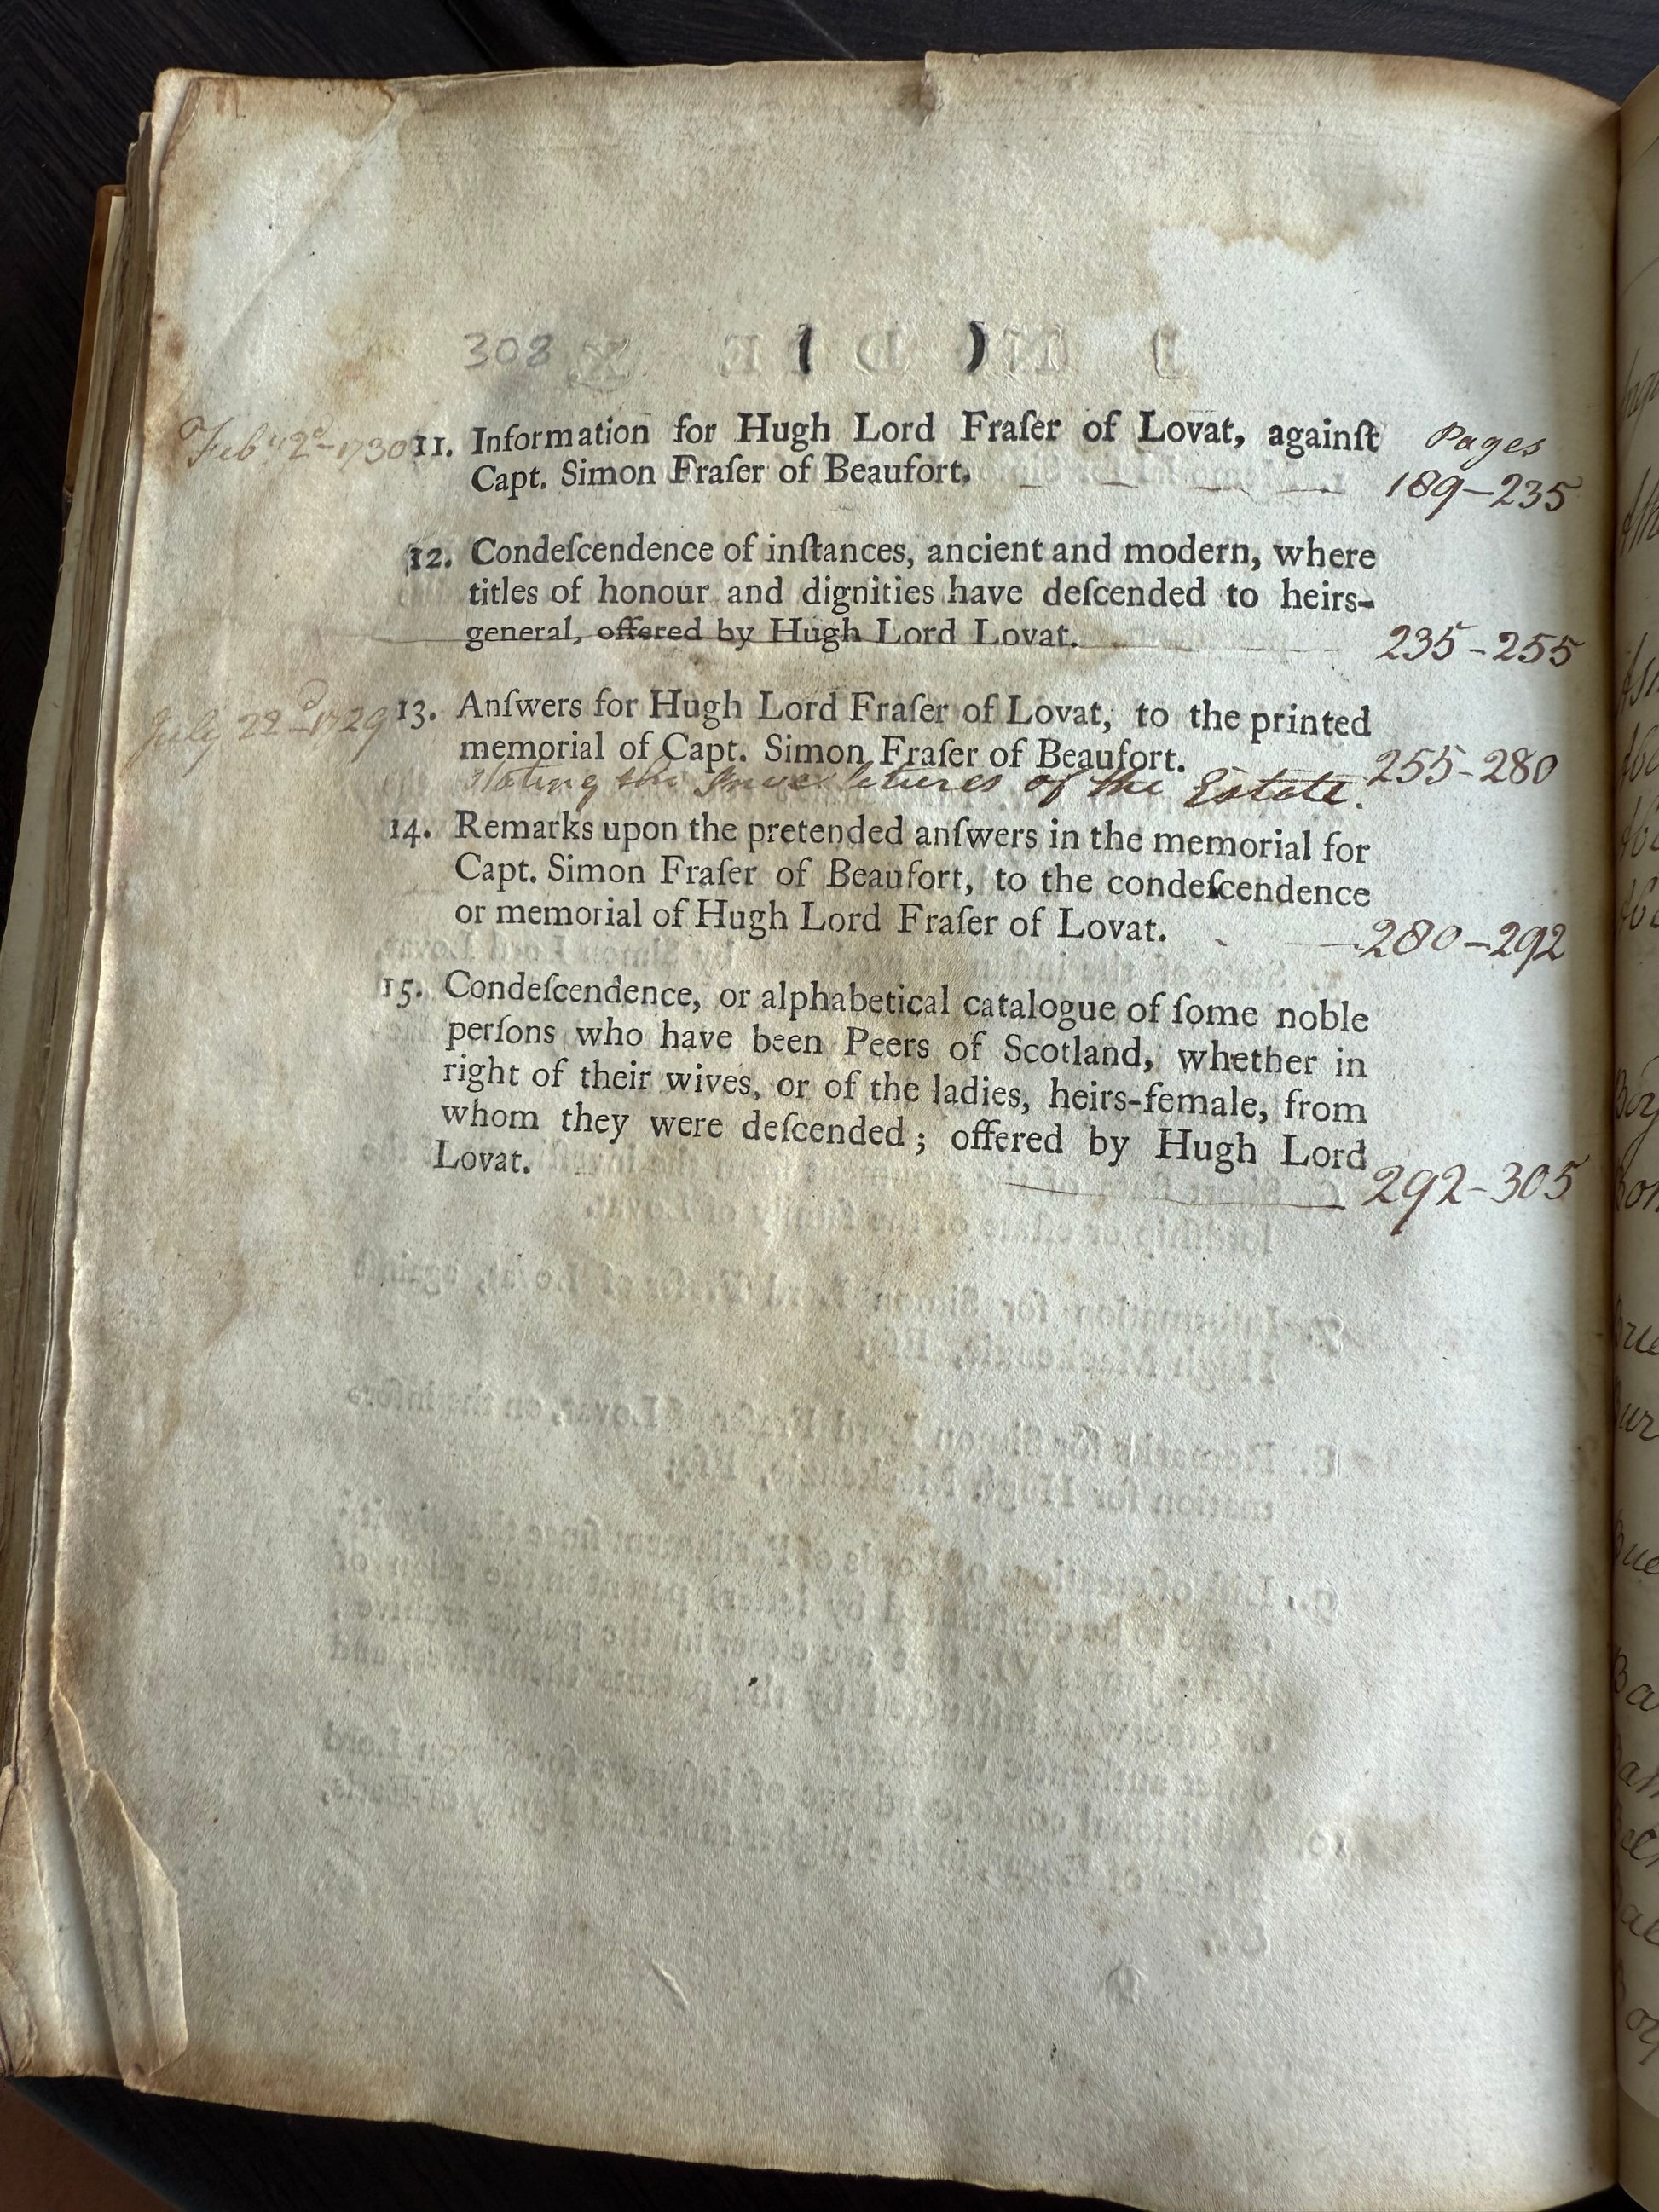 308 ( )
Feb 2d 1730 11. Information for Hugh Lord Fraſer of Lovat, againſt Pages
Capt. Simon Fraſer of Beaufort. 189-235
12. Condeſcendence of inſtances, ancient and modern, where
titles of honour and dignities have deſcended to heirs-
general, offered by Hugh Lord Lovat. 235-255
July 22d 1729 13. Anſwers for Hugh Lord Fraſer of Lovat, to the printed
memorial of Capt. Simon Fraſer of Beaufort. 255-280
Stating the Investitures of the Estate.
14. Remarks upon the pretended anſwers in the memorial for
Capt. Simon Fraſer of Beaufort, to the condeſcendence
or memorial of Hugh Lord Fraſer of Lovat. 280-292
15. Condeſcendence, or alphabetical catalogue of ſome noble
perſons who have been Peers of Scotland, whether in
right of their wives, or of the ladies, heirs-female, from
whom they were deſcended; offered by Hugh Lord
Lovat. 292-305